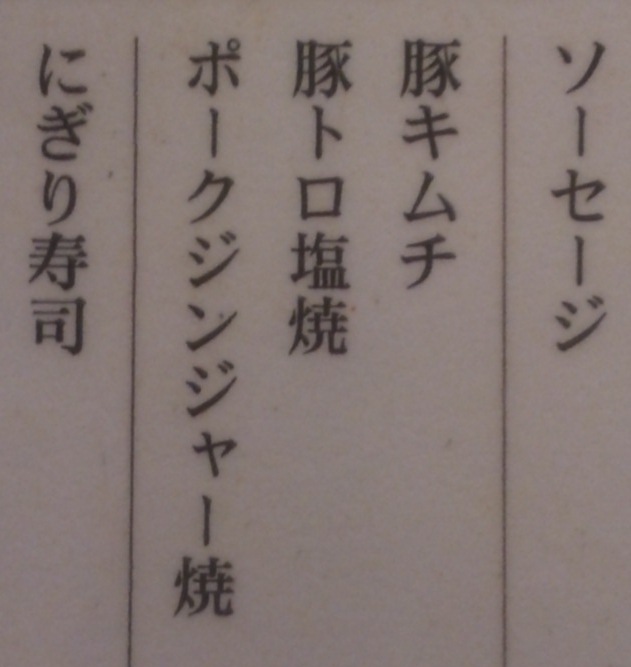 ソーセージ
豚キムチ
豚トロ塩焼
ポークジンジャー焼
にぎり寿司